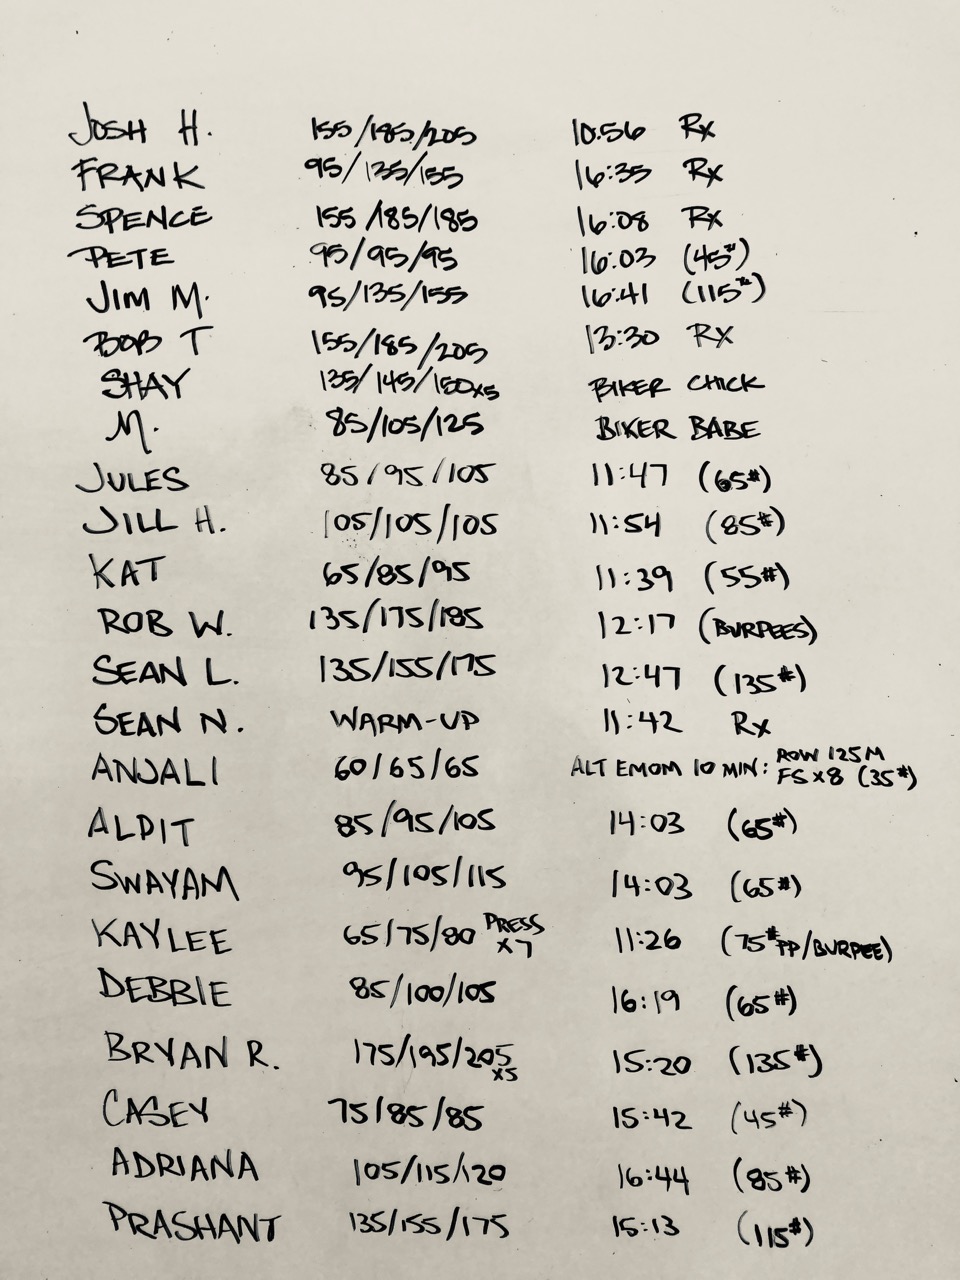 JOSH H. 155/185/205 10:56 Rx
FRANK 95/135/155 16:35 Rx
SPENCE 155/185/185 16:08 Rx
PETE 95/95/95 16:03 (45#)
JIM M. 95/135/155 16:41 (115#)
BOB T 155/185/205 13:30 RX
SHAY 135/145/150x5 BIKER CHICK
M. 85/105/125 BIKER BABE
JULES 85/95/105 11:47 (65#)
JILL H. 105/105/105 11:54 (85#)
KAT 65/85/95 11:39 (55#)
ROB W. 135/175/185 12:17 (BURPEES)
SEAN L. 135/155/175 12:47 (135#)
SEAN N. WARM-UP 11:42 Rx
ANJALI 60/65/65 ALT EMOM 10 MIN: ROW 125M
FS x 8 (35#)
ALPIT 85/95/105 14:03 (65#)
SWAYAM 95/105/115 14:03 (65#)
KAYLEE 65/75/80 PRESS x7 11:26 (75# PP/BURPEE)
DEBBIE 85/100/105 16:19 (65#)
BRYAN R. 175/195/205 x5 15:20 (135#)
CASEY 75/85/85 15:42 (45#)
ADRIANA 105/115/120 16:44 (85#)
PRASHANT 135/155/175 15:13 (115#)